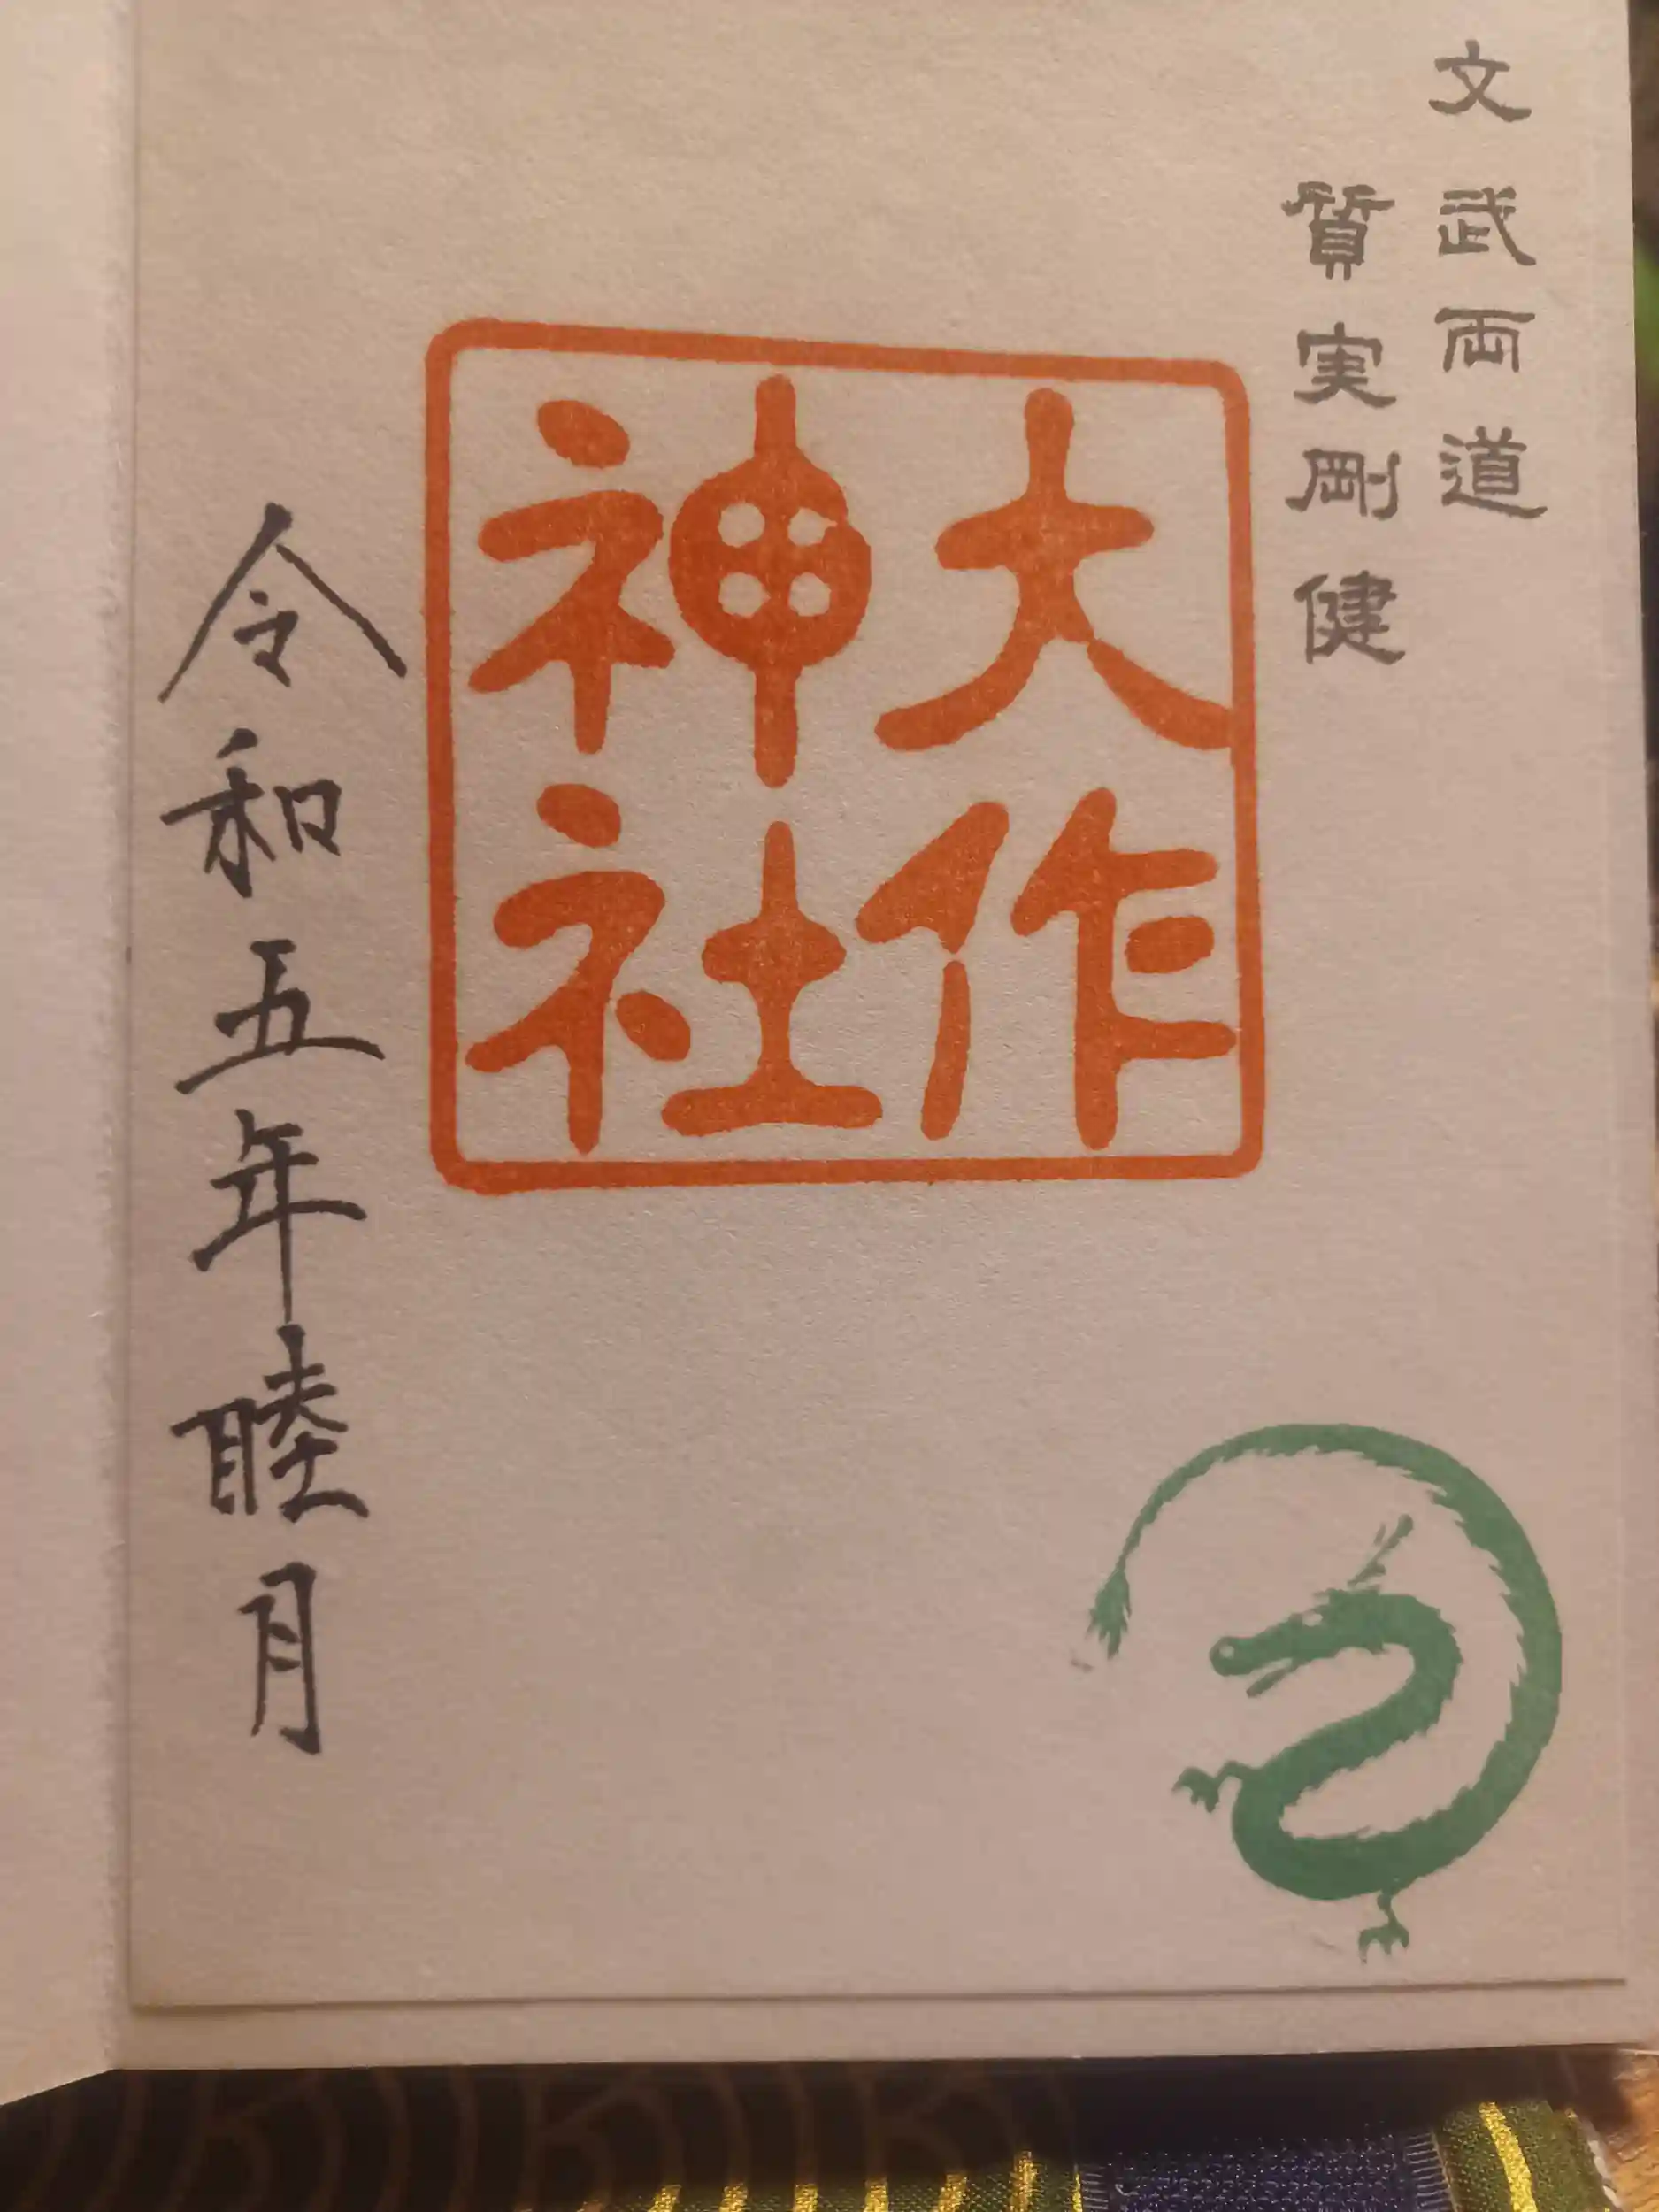 文武両道
質実剛健
大作
神社
令和五年睦月